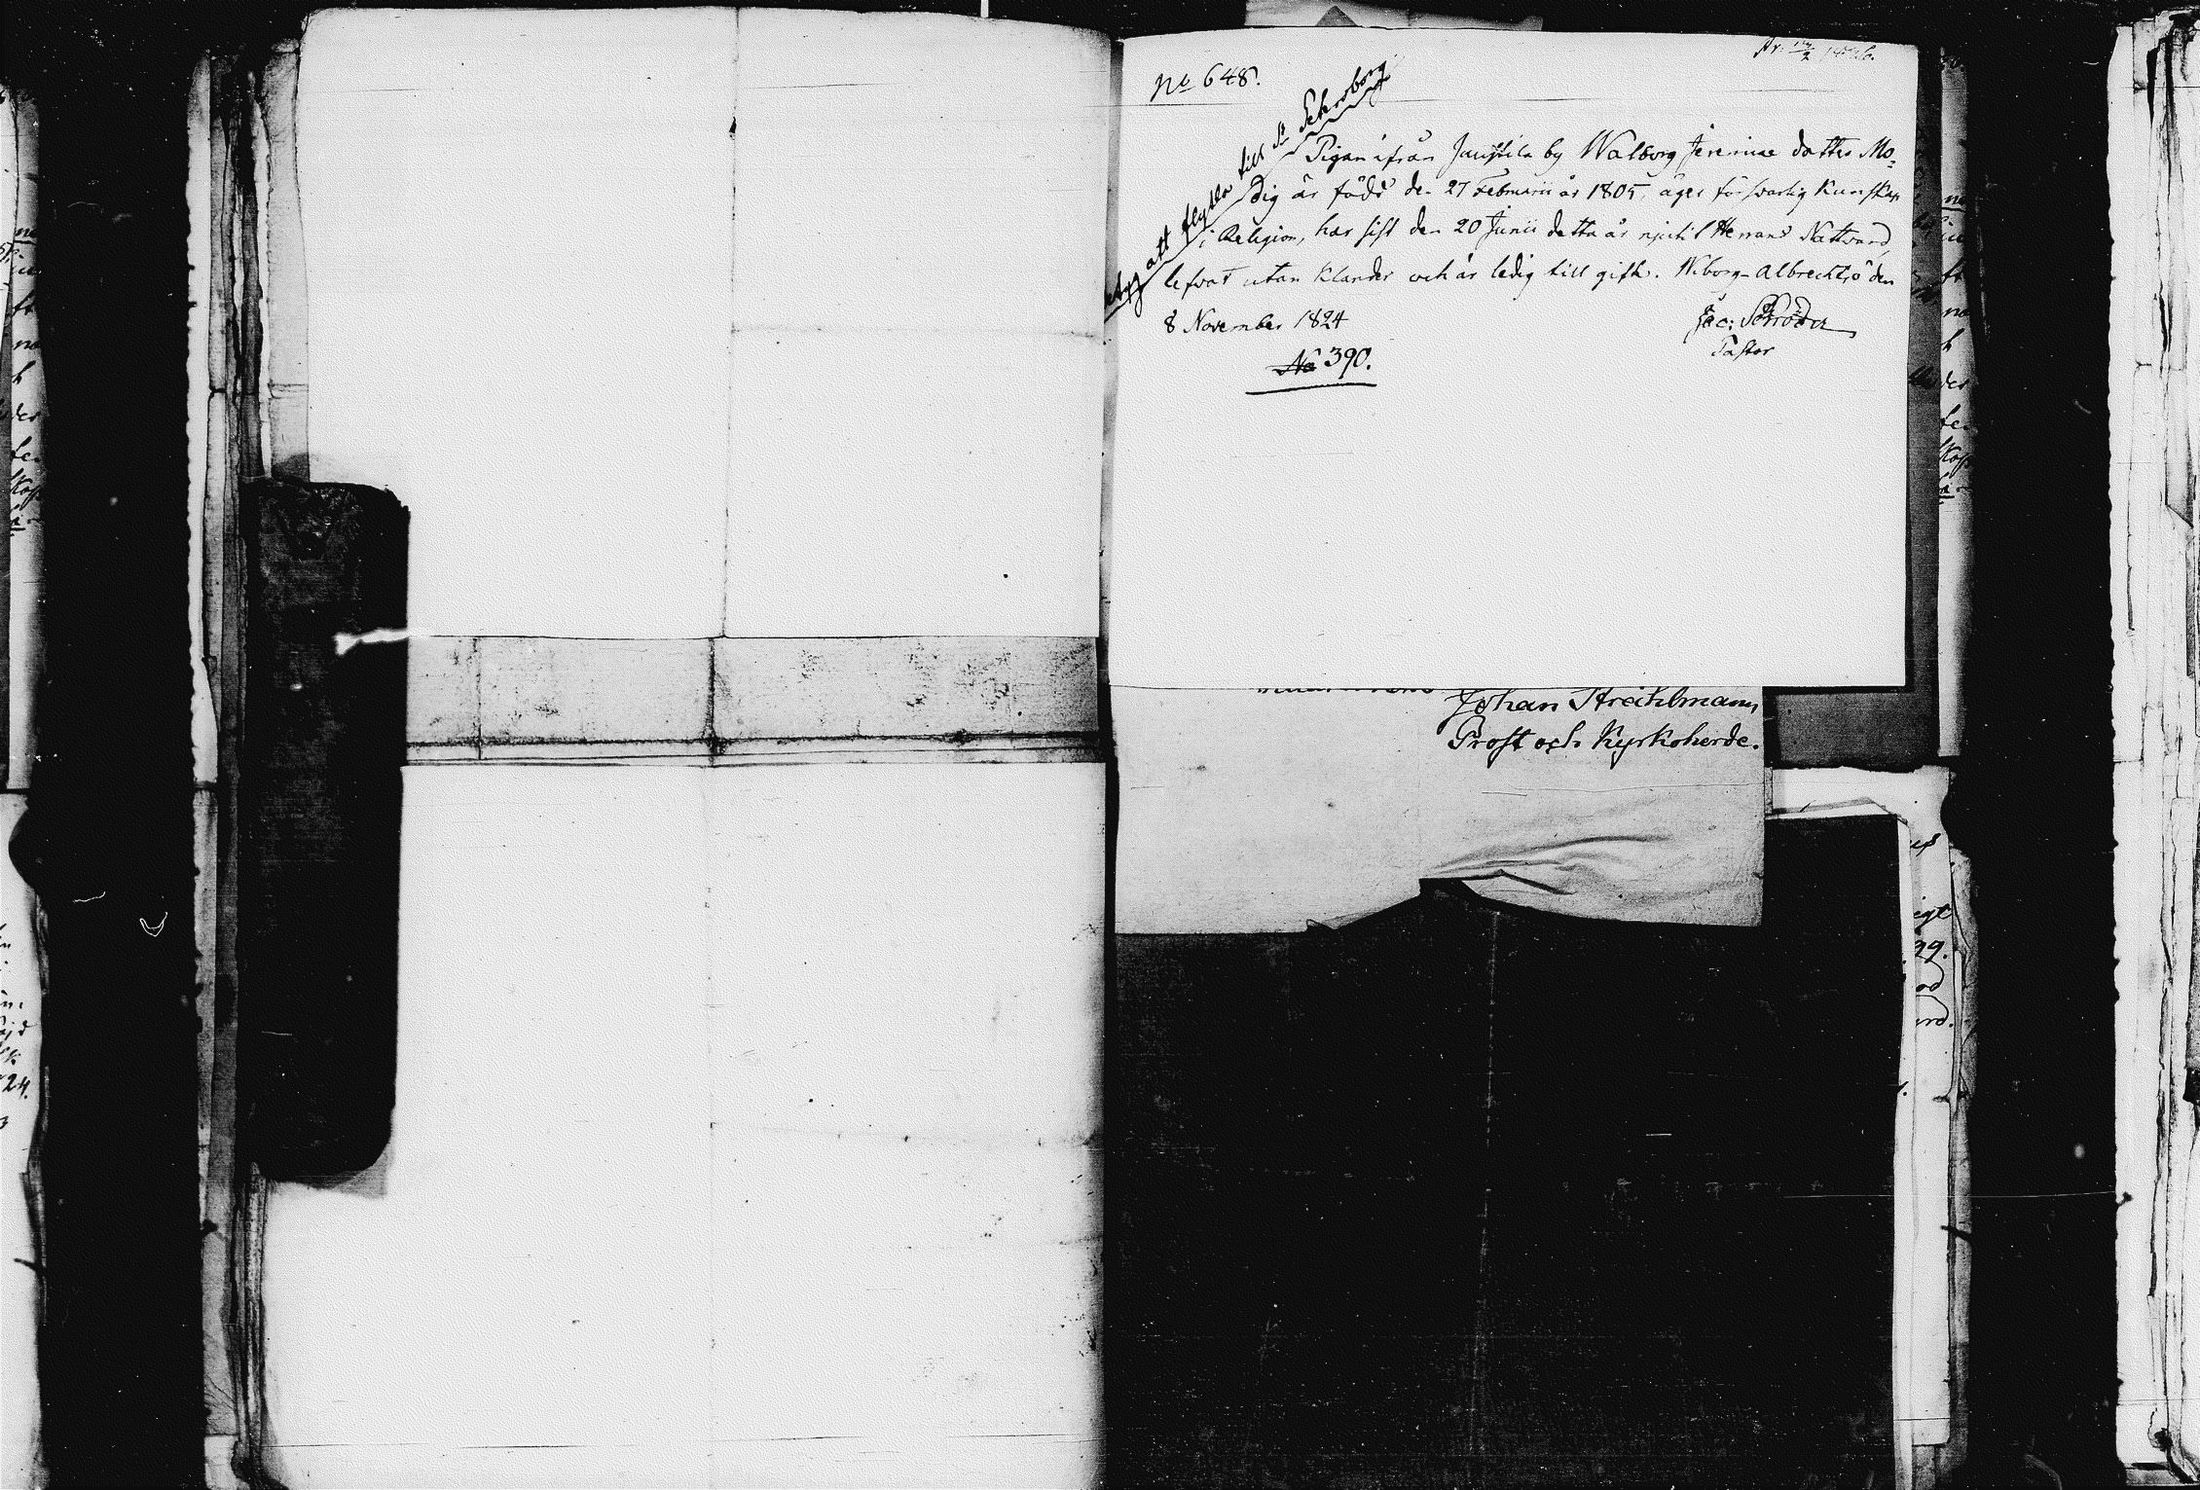 No 648.
att flytta till St Petersborg
Pigan ifrån Juustila by Walborg Jeremiae dotter Mo-
dig är född den 27 Februarii år 1805, äger försvarlig Kunskap
i Religion, har sist den 20 Junii detta år njutit Herrans Nattvard,
lefvat utan klander och är ledig till gifte. Wiborg-Albrechtsö den
8 November 1824
Jac: Schröder
Pastor
No 390.
Johan Strählmann,
Prost och Kyrkoherde.
24.